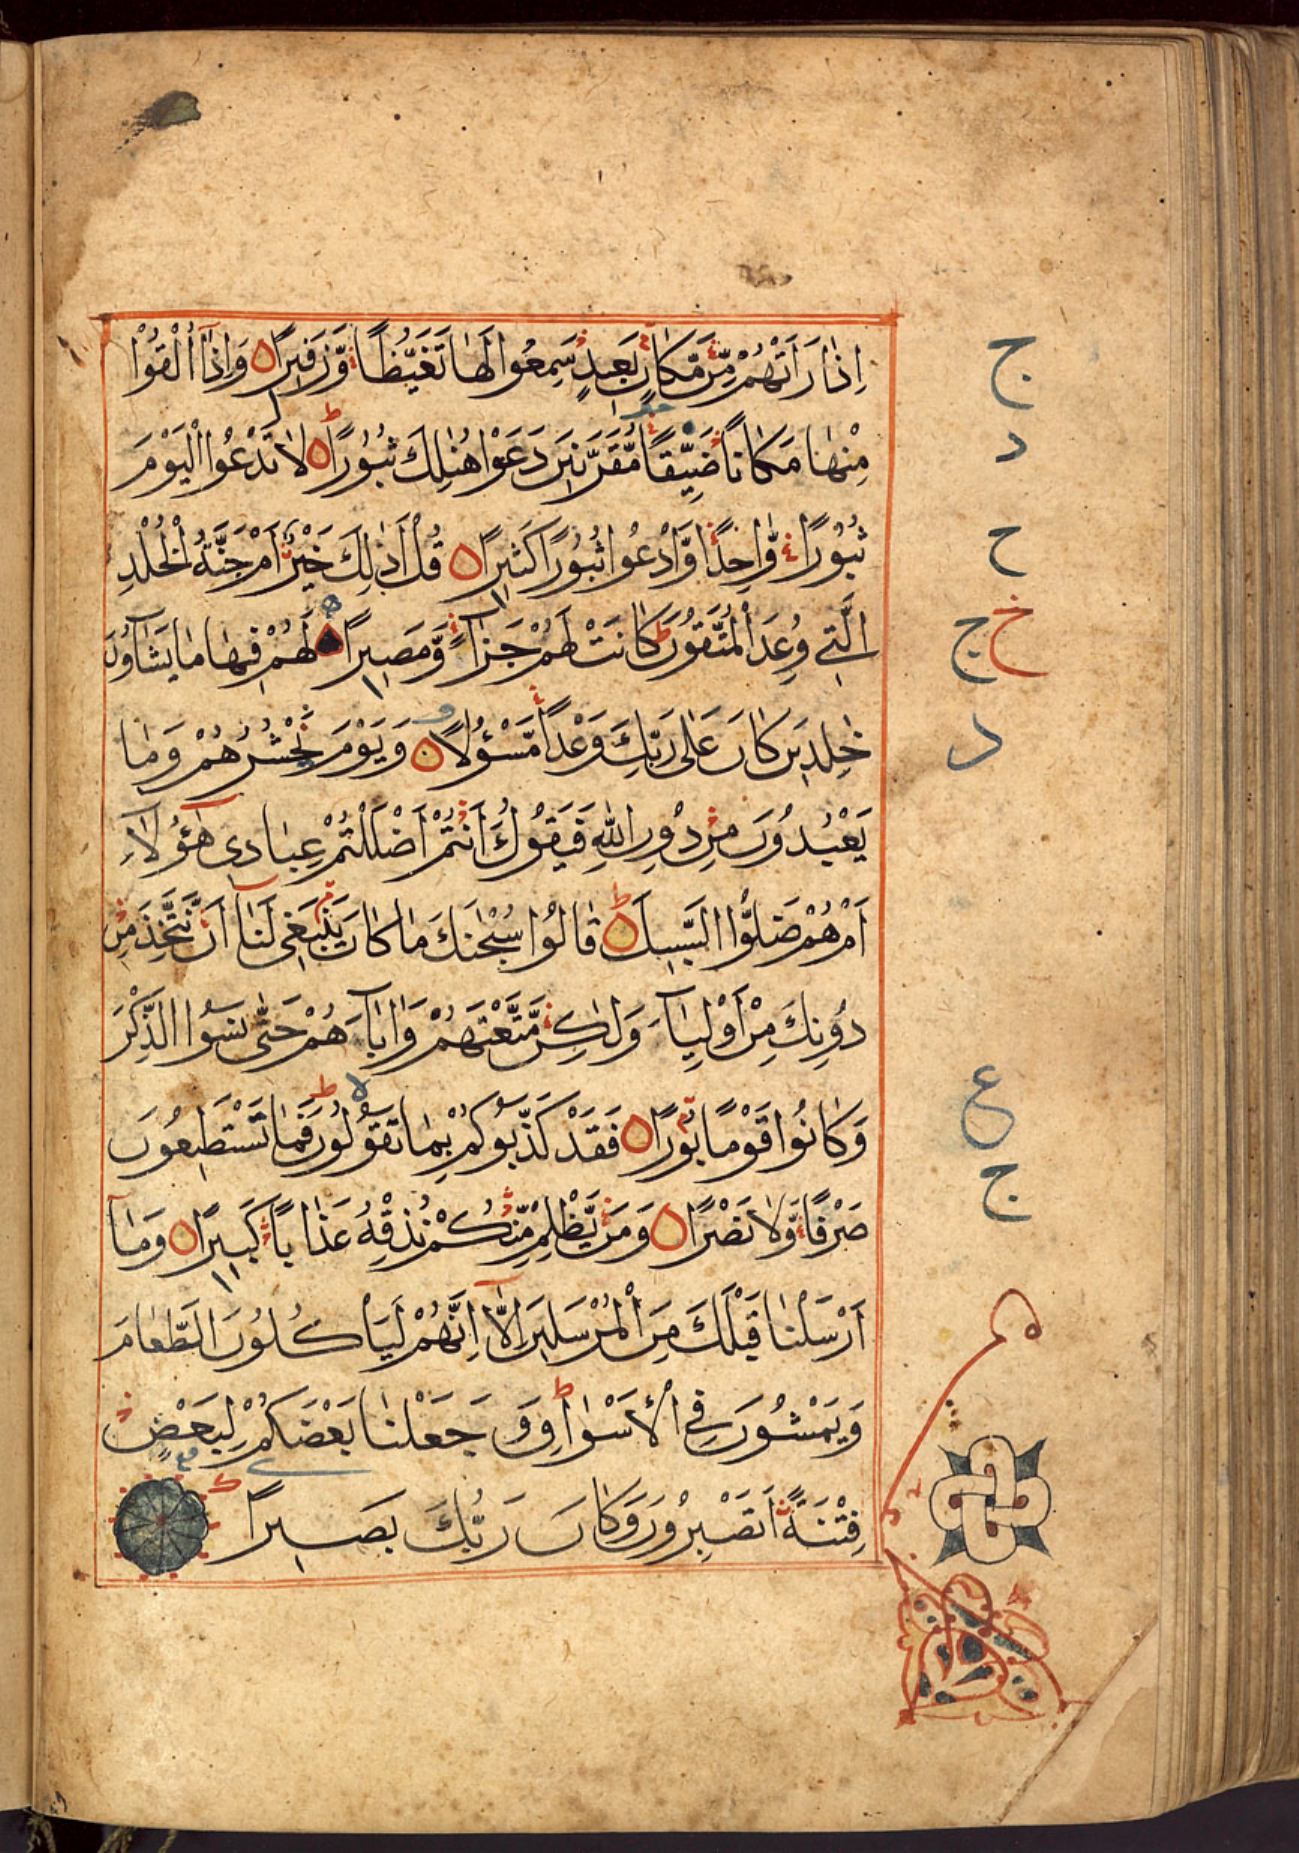 اِذَا رَاَتْهُمْ مِّنْ مَّكَانٍ بَعِيدٍ سَمِعُوا لَهَا تَغَيُّظًا وَّزَفِيرًا وَاِذَآ اُلْقُوْا
مِنْهَا مَكَانًا ضَيِّقًا مُّقَرَّنِينَ دَعَوْا هُنَالِكَ ثُبُورًا لَا تَدْعُوا الْيَوْمَ
ثُبُورًا وَّاحِدًا وَّادْعُوا ثُبُورًا كَثِيرًا قُلْ اَذٰلِكَ خَيْرٌ اَمْ جَنَّةُ الْخُلْدِ
الَّتِي وُعِدَ الْمُتَّقُونَ كَانَتْ لَهُمْ جَزَآءً وَّمَصِيرًا لَهُمْ فِيهَا مَا يَشَآؤُنَ
خٰلِدِينَ كَانَ عَلٰى رَبِّكَ وَعْدًا مَّسْؤُلًا وَيَوْمَ نَحْشُرُهُمْ وَمَا
يَعْبُدُونَ مِنْ دُونِ اللّٰهِ فَيَقُولُ ءَاَنْتُمْ اَضْلَلْتُمْ عِبَادِى هٰٓؤُلَآءِ
اَمْ هُمْ ضَلُّوا السَّبِيلَ قَالُوْا سُبْحٰنَكَ مَا كَانَ يَنْبَغِى لَنَآ اَنْ نَّتَّخِذَ مِنْ
دُونِكَ مِنْ اَوْلِيَآءَ وَلٰكِنْ مَّتَّعْتَهُمْ وَاٰبَآءَهُمْ حَتّٰى نَسُوا الذِّكْرَ
وَكَانُوا قَوْمًا بُورًا فَقَدْ كَذَّبُوكُمْ بِمَا تَقُولُونَ فَمَا تَسْتَطِيعُونَ
صَرْفًا وَّلَا نَصْرًا وَمَنْ يَّظْلِمْ مِّنْكُمْ نُذِقْهُ عَذَابًا كَبِيرًا وَمَآ
اَرْسَلْنَا قَبْلَكَ مِنَ الْمُرْسَلِينَ اِلَّآ اِنَّهُمْ لَيَاْكُلُونَ الطَّعَامَ
وَيَمْشُونَ فِي الْاَسْوَاقِ وَجَعَلْنَا بَعْضَكُمْ لِبَعْضٍ
فِتْنَةً اَتَصْبِرُونَ وَكَانَ رَبُّكَ بَصِيرًا
ج
د
ح
خ ج
د
ع
ج